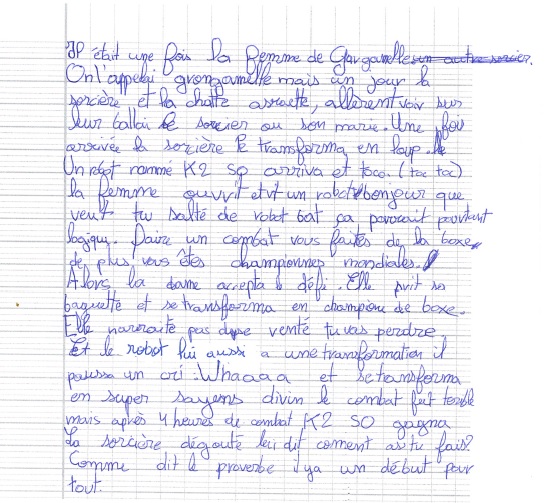 Il était une fois la femme de Gargamelle un autre sorcier.
On l'appelai grongamelle mais un jour la
sorcière et la chatte assouette, allèrent voir sur
leur ballai le sorcier ou son marie. Une fois
arrivée la sorcière le transforma en loup. le
Un robot nommé K2 SO arriva et toco. (toc toc)
la femme ouvrit et vit un robot bonjour que
veut tu salté de robot bat ça pourait pourtant
logique. Faire un combat vous faites de la boxe
de plus vous êtes championnes mondiales.
Alors la dame accepta le défi. Elle prit sa
baguette et se transforma en championne de boxe.
Elle pas venté tu vas perdre
Et le robot lui aussi a une transformation il
poussa un cri : Whaaaa et se transforma
en super sayens divin le combat fut terible
mais après 4 heures de combat K2 SO gagna
La sorcière dégouté lui dit coment as tu fais?
Comme dit le proverbe il y a un début pour
tout.